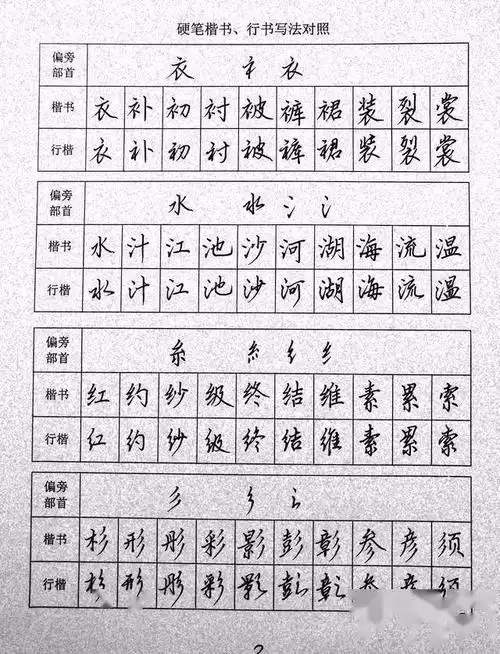 硬笔楷书、行书写法对照
偏旁部首 衣 衤 衣
楷书 衣 补 初 衬 被 裤 裙 装 裂 裳
行楷 衣 补 初 衬 被 裤 裙 装 裂 裳
偏旁部首 水 水 氵 氵
楷书 水 汁 江 池 沙 河 湖 海 流 温
行楷 水 汁 江 池 沙 河 湖 海 流 温
偏旁部首 糹 糹 纟 纟
楷书 红 约 纱 级 终 结 维 素 累 索
行楷 红 约 纱 级 终 结 维 素 累 索
偏旁部首 彡 彡
楷书 杉 形 彤 彩 影 彭 彰 参 彦 须
行楷 杉 形 彤 彩 影 彭 彰 参 彦 须
2